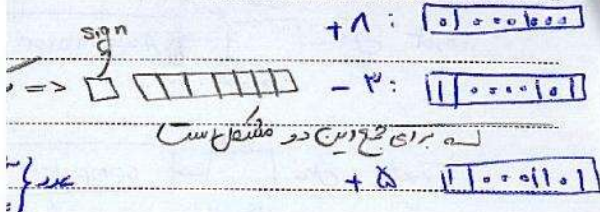 sign
+ ۸ : 0|0001000
=> - ۳ : 1|0000101
برای جمع این دو مشکل است
عدد { + ۵ 1|0001101